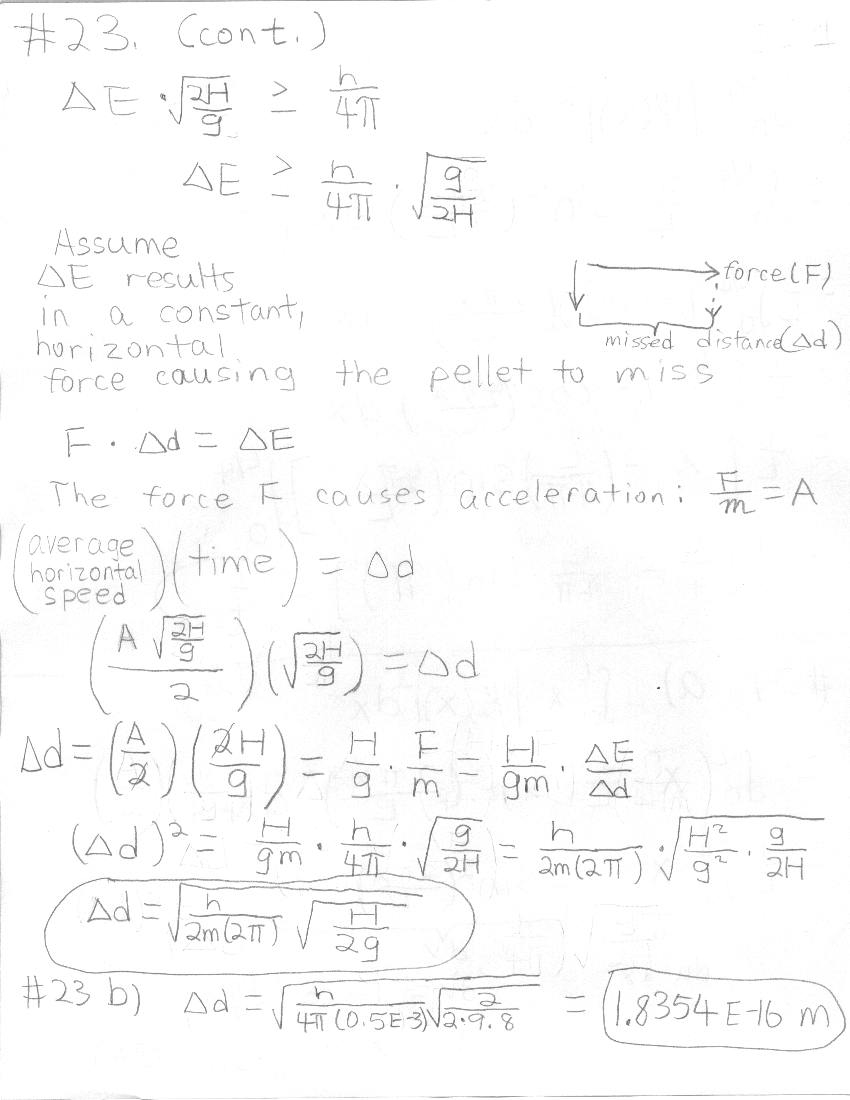 #23. (cont.)
ΔE · √(2H/g) ≥ h/4π
ΔE ≥ h/4π · √(g/2H)
Assume
ΔE results
in a constant,
horizontal
force causing the pellet to miss
force(F)
missed distance(Δd)
F · Δd = ΔE
The force F causes acceleration: F/m = A
(average horizontal speed)(time) = Δd
(A √(2H/g) / 2)(√(2H/g)) = Δd
Δd = (A/2)(2H/g) = H/g · F/m = H/gm · ΔE/Δd
(Δd)² = H/gm · h/4π · √(g/2H) = h/2m(2π) · √(H²/g² · g/2H)
Δd = √(h/2m(2π) √(H/2g))
#23 b) Δd = √(h/4π(0.5E-3) √(2/2·9.8)) = 1.8354 E-16 m